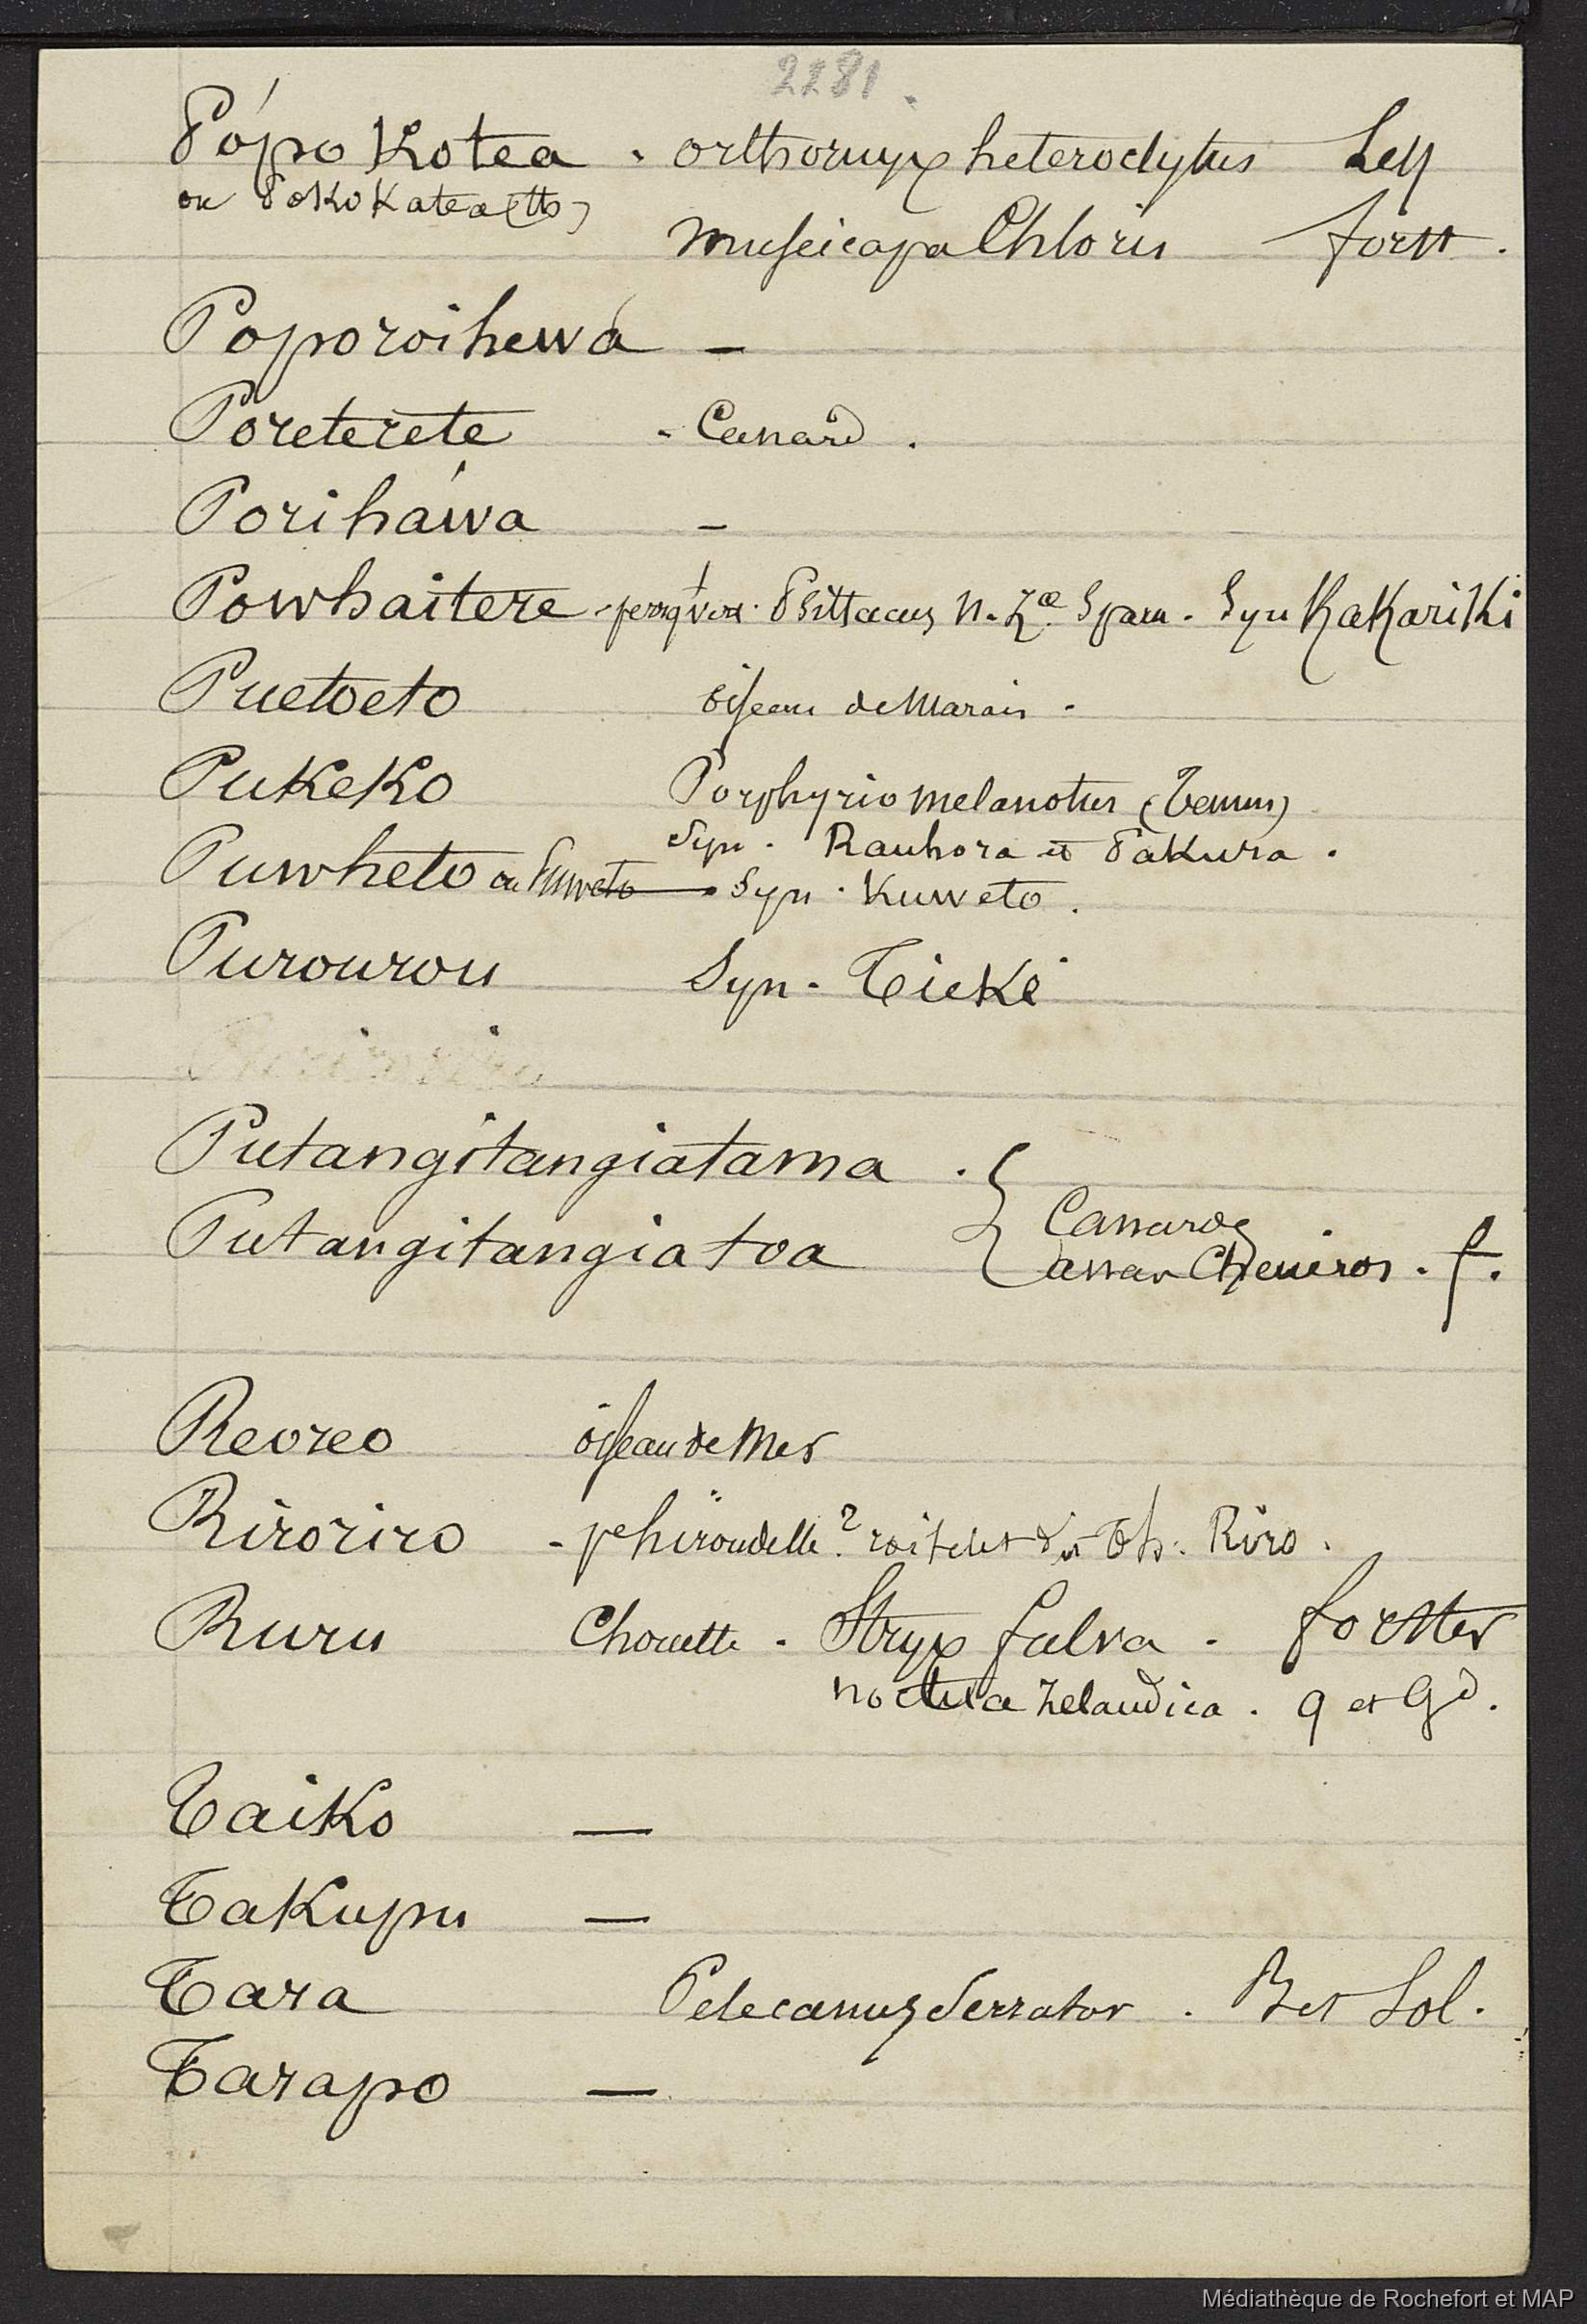 2281.
Pópo Kotea . orthonyx heteroclytus Less
ou Poko Katea (tts)
Muscicapa Chloris Forst.
Poporoihewa –
Poreterete - Canard.
Poriháwa –
Powhaitere - perroq vert. Psittacus N. Zæ Sparm. Syn KaKariKi
Puetoeto oiseau de Marais.
PuKeKo Porphyrio melanotus (Temm)
Syn. Rauhora et PaKura.
Puwheto ou Puweto – Syn. Kuweto.
Purourou Syn. TieKe
Putangitangiatama
Putangitangiatoa { Canards
anas Cheneros. f.
Reoreo oiseau de Mer
Riroriro - pe hirondelle? roitelet Th. Riro.
Ruru Chouette. Stryx fulva. Forster
noctua Zelandica. q et Gd.
TaiKo —
TaKupu —
Tara Pelecanus Serrator. B et Sol.
Tarapo —
Médiathèque de Rochefort et MAP